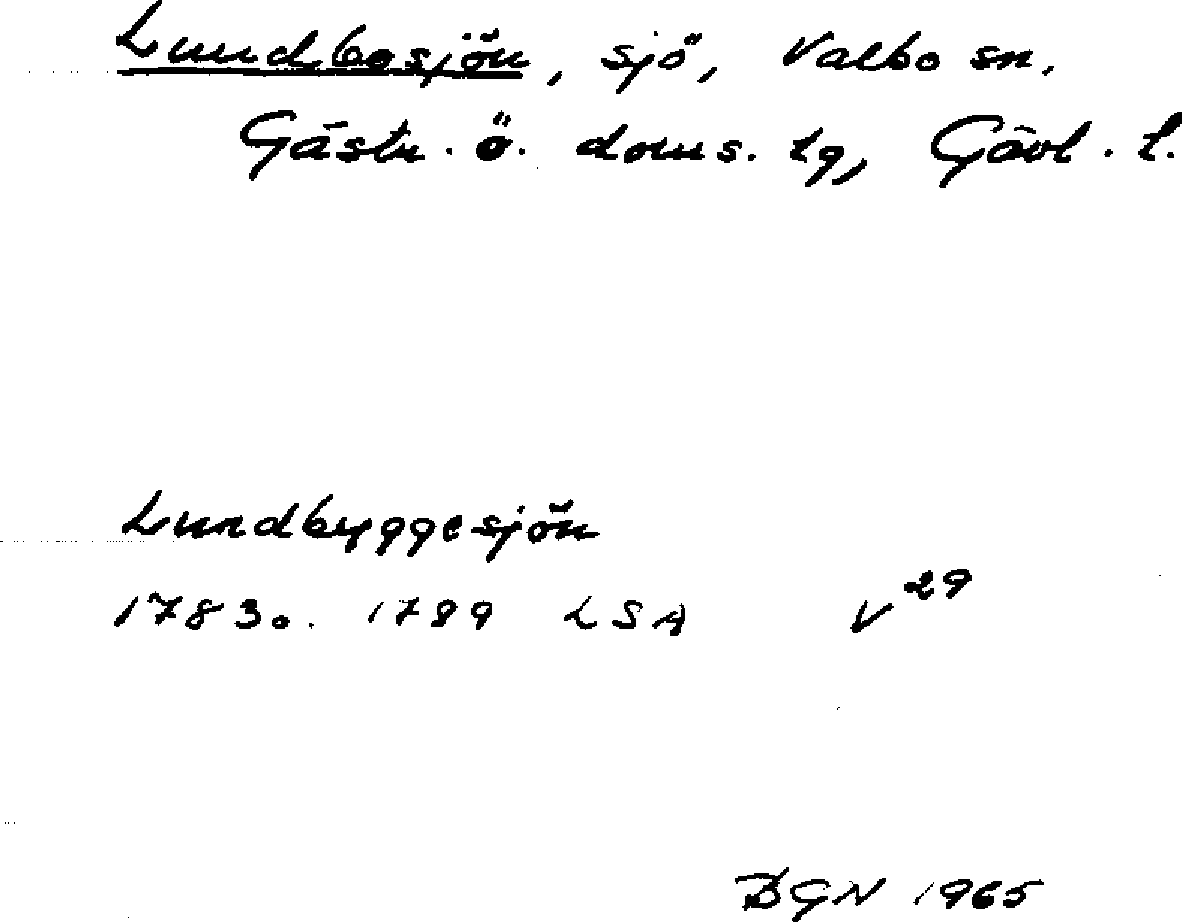 Lundbosjön, sjö, Valbo sn.
Gästr. ö. doms. tg, Gävl. l.
Lundbyggesjön
1783 o. 1789 LSA V 29
BGN 1965